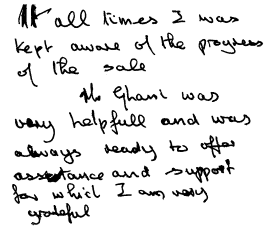 At all times I was
kept aware of the progress
of the sale
Mr Ghani was
very helpfull and was
always ready to offer
assistance and support
for which I am very
grateful